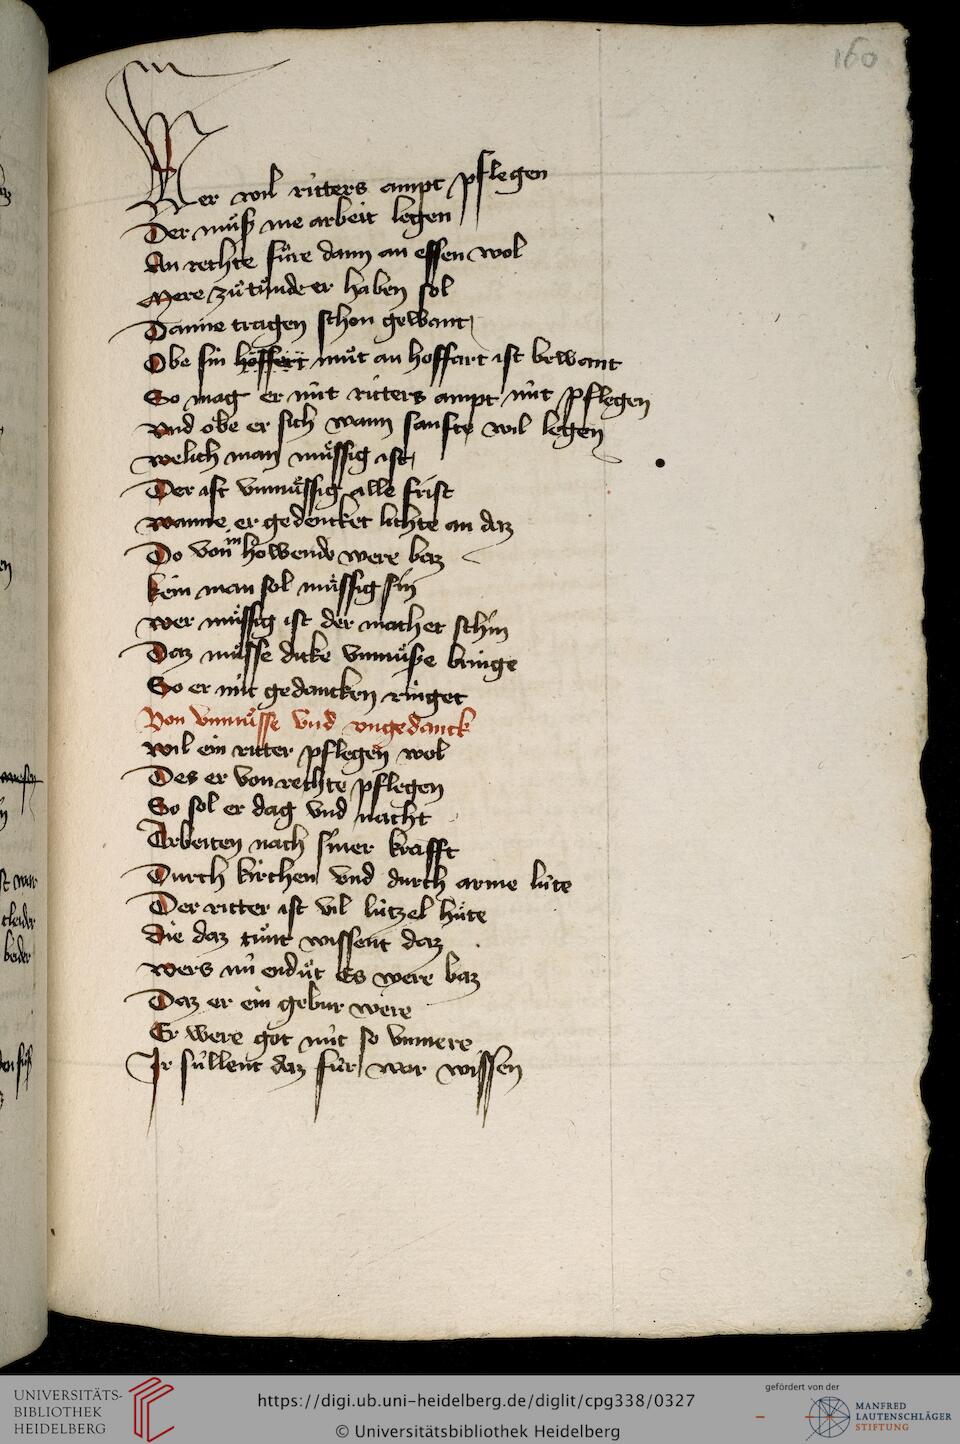 160
Wer wil ritters ampt pflegen
Der muͦß me arbeit legen
An rechte fuͤre dann an essen wol
Mere zuͦ tuͦnde er haben sol
Danne tragen schon gewant
Obe sin hoffert muͦt an hoffart ist bewant
So mag er nuͤt ritters ampt nuͤt pflegen
Vnd obe er sich wann sanfte wil legen
Welich man muͤssig ist
Der ist vnmuͤssig alle frist
Wanne er gedencket lichte an daz
Do von im howende were baz
Kein man sol muͤssig sin
Wer muͤssig ist der machet schin
Daz muͦsse dicke vnmuͦße bringe
So er mit gedancken ringet
Von vnmuͦsse vnd vngedanck
Wil ein ritter pflegen wol
Des er von rechte pflegen
So sol er dag vnd nacht
Arbeiten nach siner krafft
Durch kirchen vnd durch arme luͤte
Der ritter ist vil luͤtzel huͤte
Die daz tuͦnt wissent daz
Wers nuͤ enduͦt Es were baz
Daz er ein gebur were
Er were got nuͤt so vnmere
Ir suͤllent daz fuͤr war wissen
UNIVERSITÄTS-
BIBLIOTHEK
HEIDELBERG
https://digi.ub.uni-heidelberg.de/diglit/cpg338/0327
© Universitätsbibliothek Heidelberg
gefördert von der
MANFRED
LAUTENSCHLÄGER
STIFTUNG